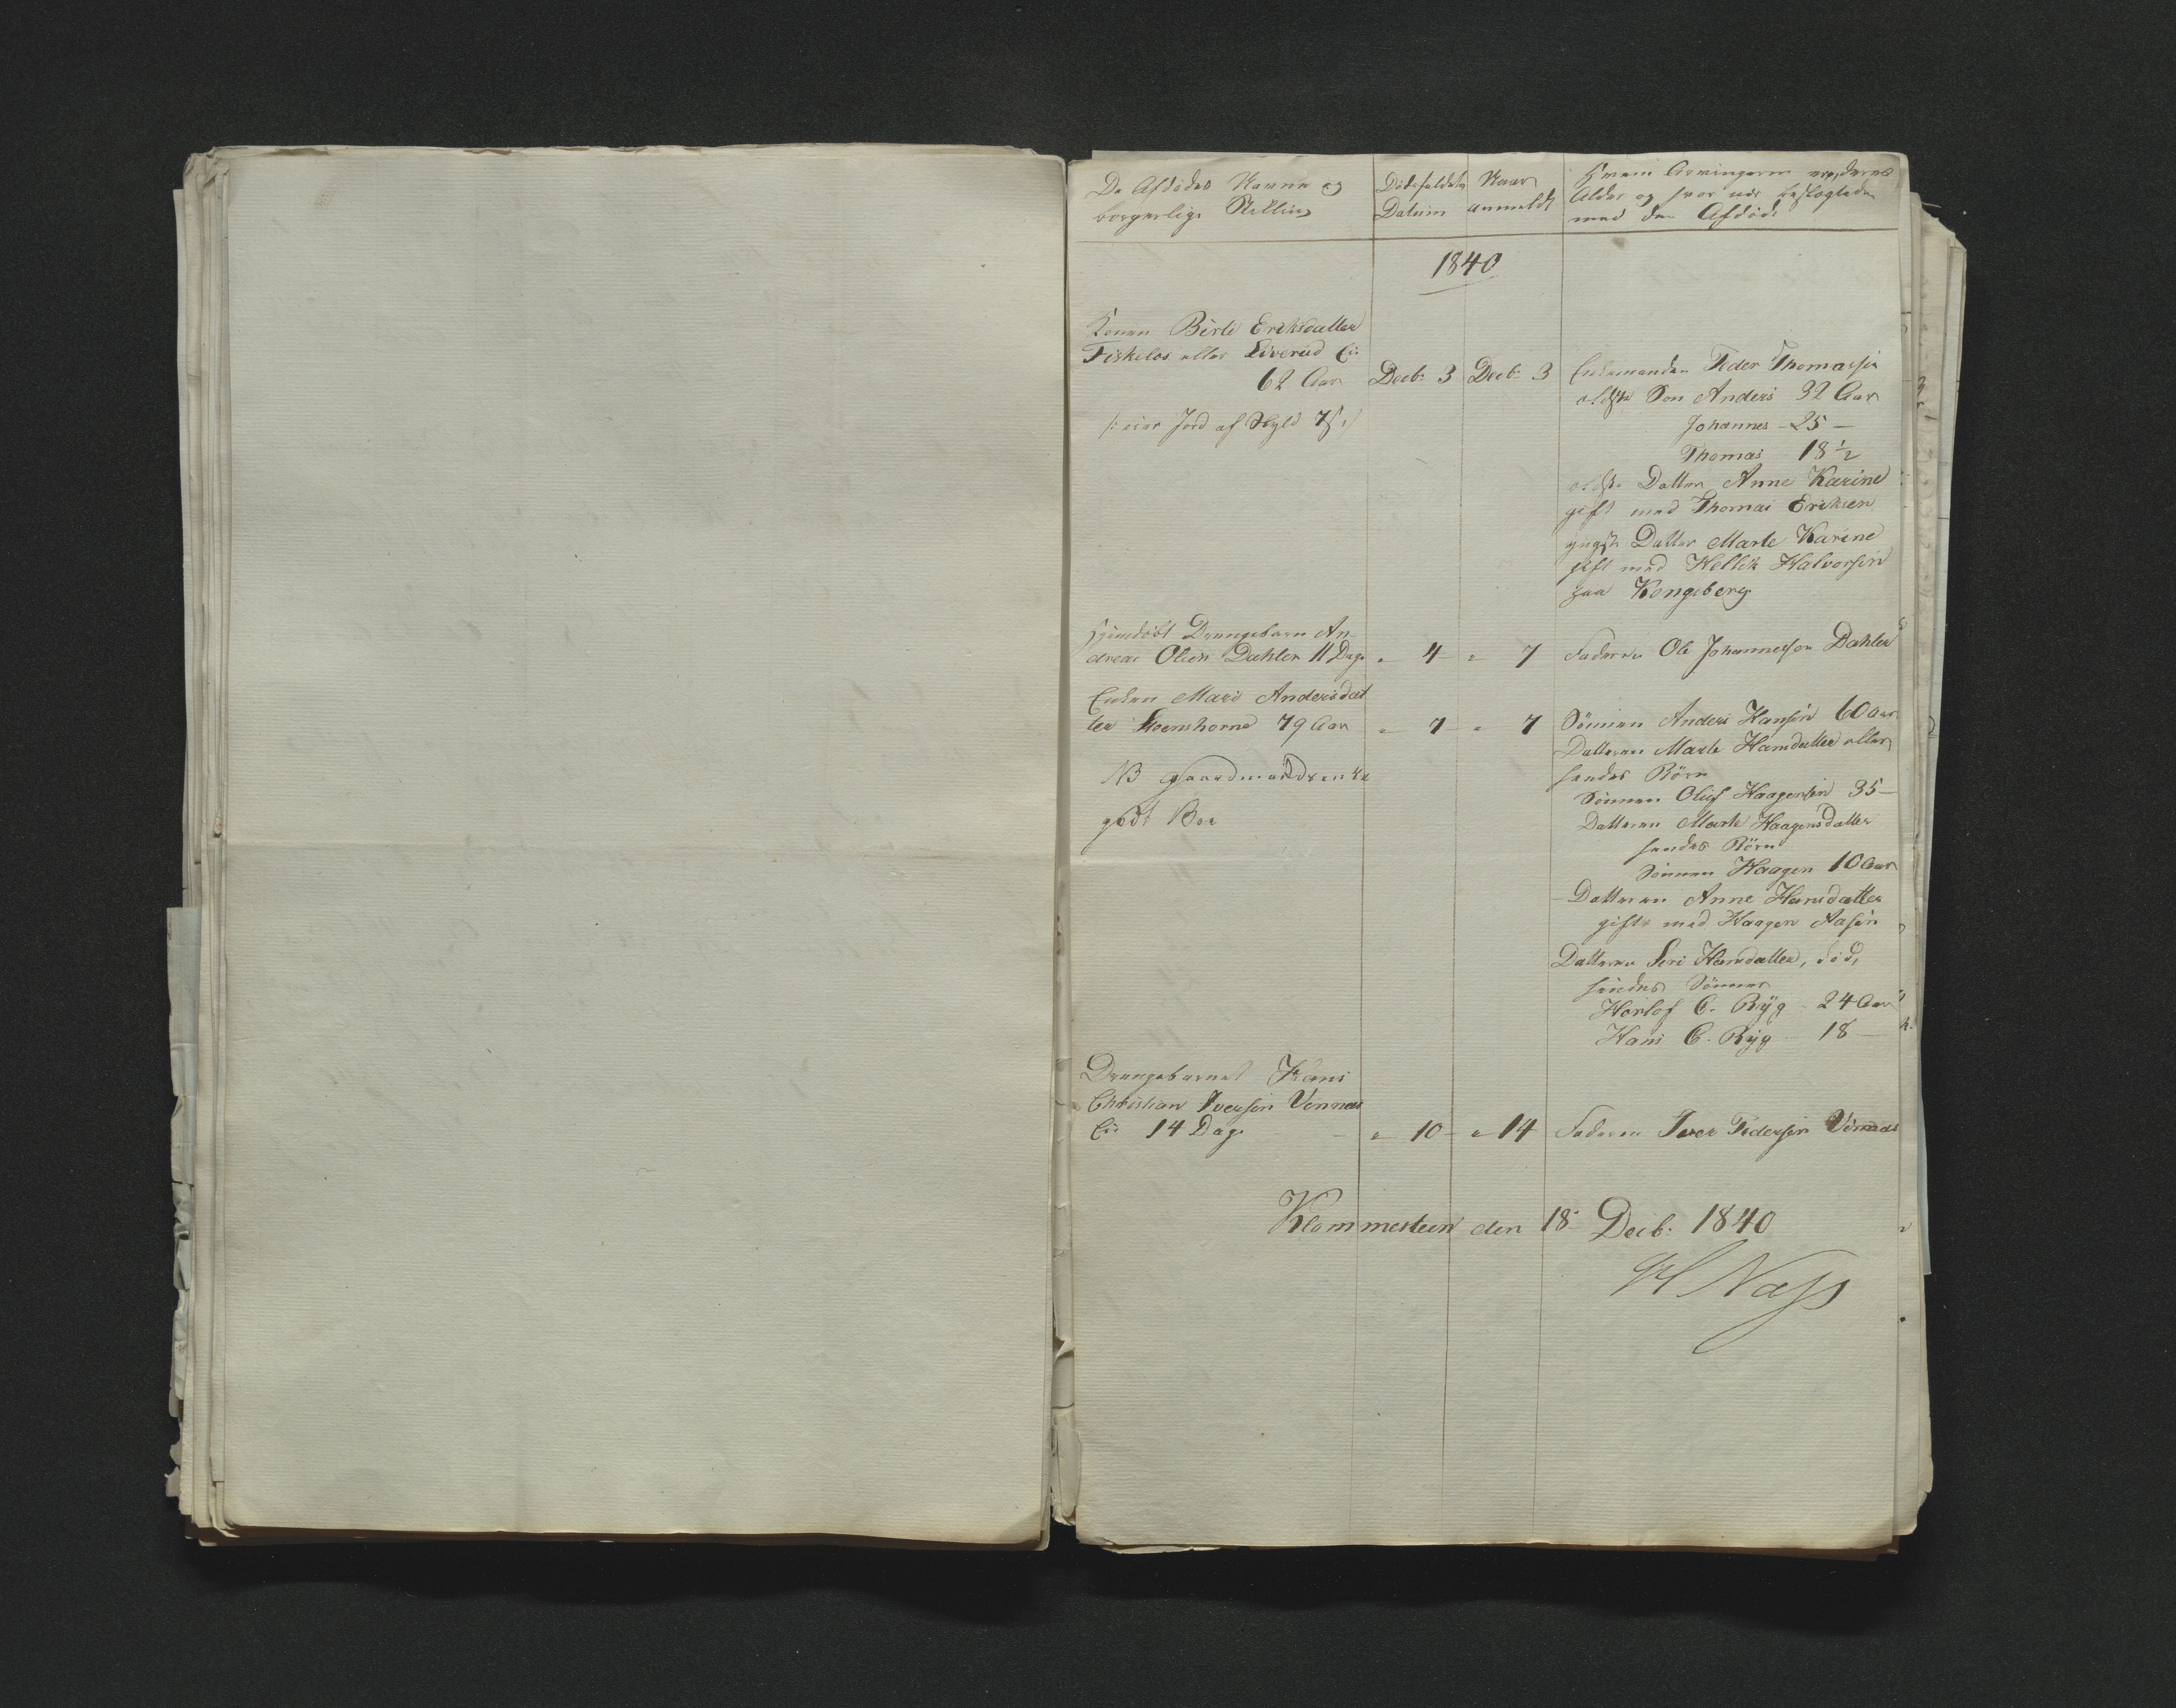 De Afdödes Navne og
borgerlige Stilling
Dödsfaldets
Datum
Naar
anmeldt
Hvem Arvingerne ere, deres
Alder og hvor nær beslægtede
med den Afdöde
1840
Konen Birte Eriksdatter
Fiskelös eller Liverud Eie
62 Aar Decb: 3 Decb: 3
/: eier Jord af Skyld
Enkemanden Peder Thomassen
ældste Søn Anders 32 Aar
Johannes - 25 —
Thomas 18 ½
ældste Datter Anne Karine
gift med Thomas Eriksen
yngste Datter Marte Karine
gift med Hellik Halvorsen
paa Kongsberg
Hjemdöbt Drengebarn An-
dreas Olsen Dahlen 11 Dage " 4 - " 7 Faderen Ole Johannessen Dahlen
Enken Mari Andersdat
ter Hoenshorne 79 Aar " 7 - " 7
NB gaardmandsenke
godt Boe
Sönnen Anders Hansen 60 Aar
Datteren Marte Hansdatter eller
hendes Börn
Sönnen Oluf Haagensen 35 —
Datteren Marte Haagensdatter
hendes Börn
Sönnen Haagen 10 Aar
Datteren Anne Hansdatter
gift med Haagen Aasen
Datteren Siri Hansdatter, död,
hendes Sönner
Horlof C. Ryg - 24 Aar
Hans C. Ryg - 18 —
Drengebarnet Hans
Christian Iversen Vinnæs
Eie 14 Dage - " 10 - " 14 Faderen Iver Pedersen Vinnæs
Klommesteen den 18: Decb: 1840
H Næss